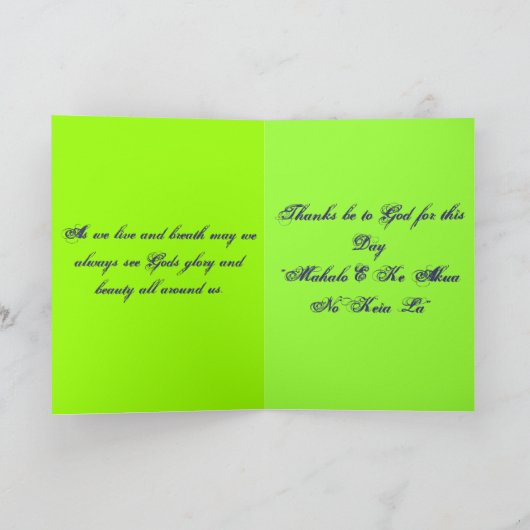 As we live and breath may we
always see Gods glory and
beauty all around us.
Thanks be to God for this
Day
"Mahalo E Ke Akua
No Keia Lá"